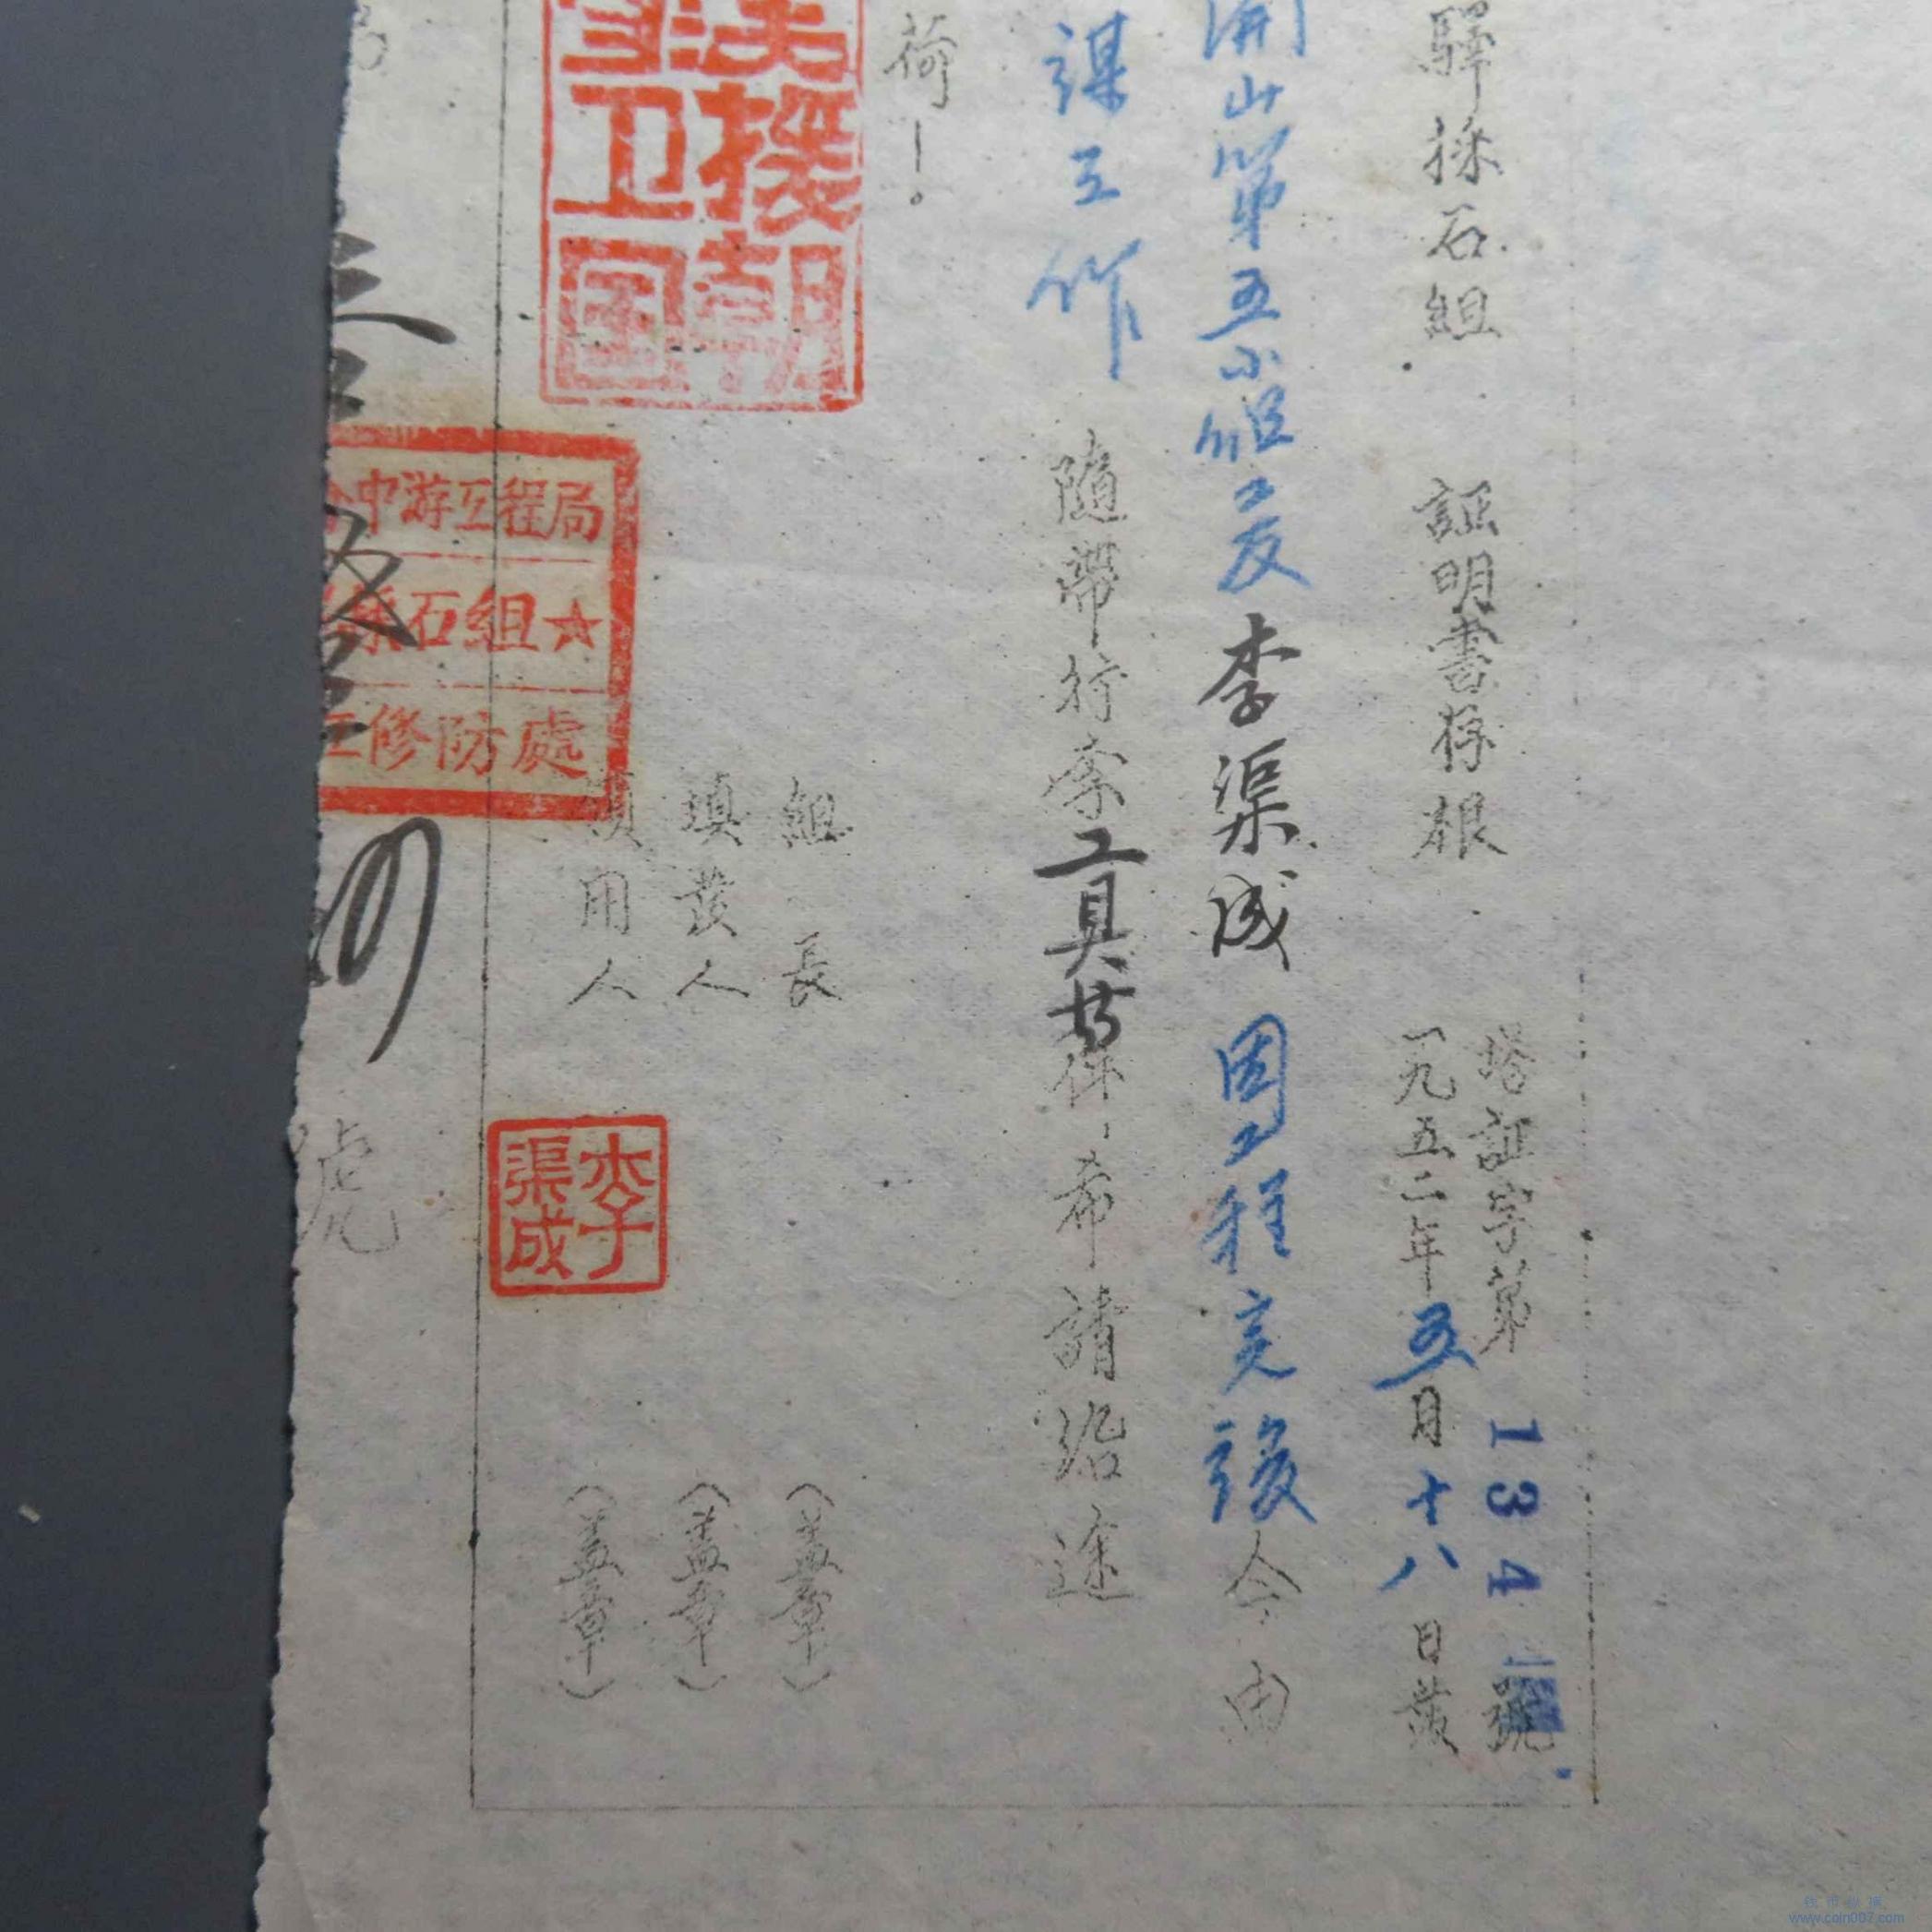 驛採石組 証明書存根
塔証字第 134 號
一九五二年五月十八日發
開山第五小組工友李渠成 因工程完後 今由
謀工作 隨帶行李工具共 件,希請沿途
荷!。
組長 (盖章)
填發人 (盖章)
領用人 (盖章)
美援朝
卫国
中游工程局
採石組☆
江修防處
李渠成
號
www.coin007.com